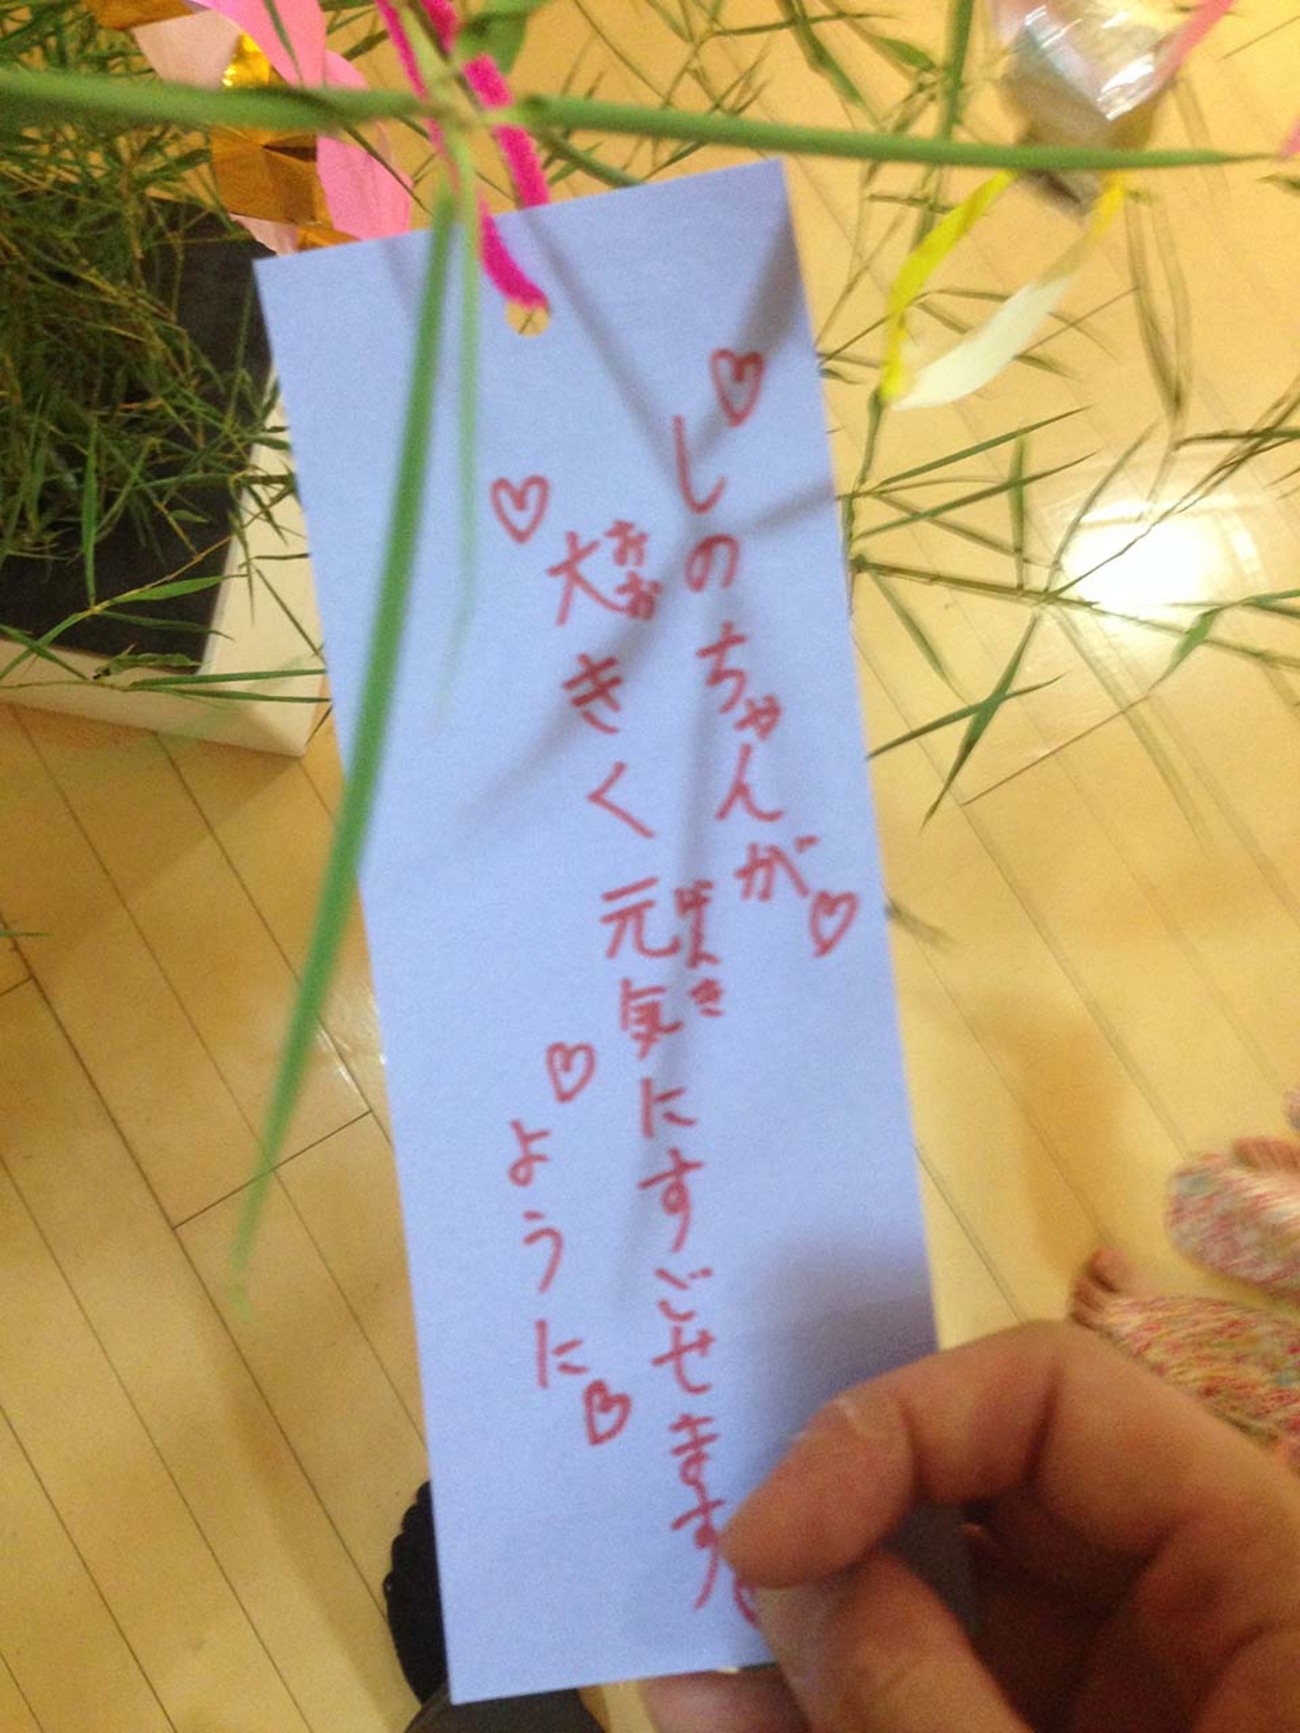 しのちゃんが
大きく元気にすごせます
おお
げんき
ように